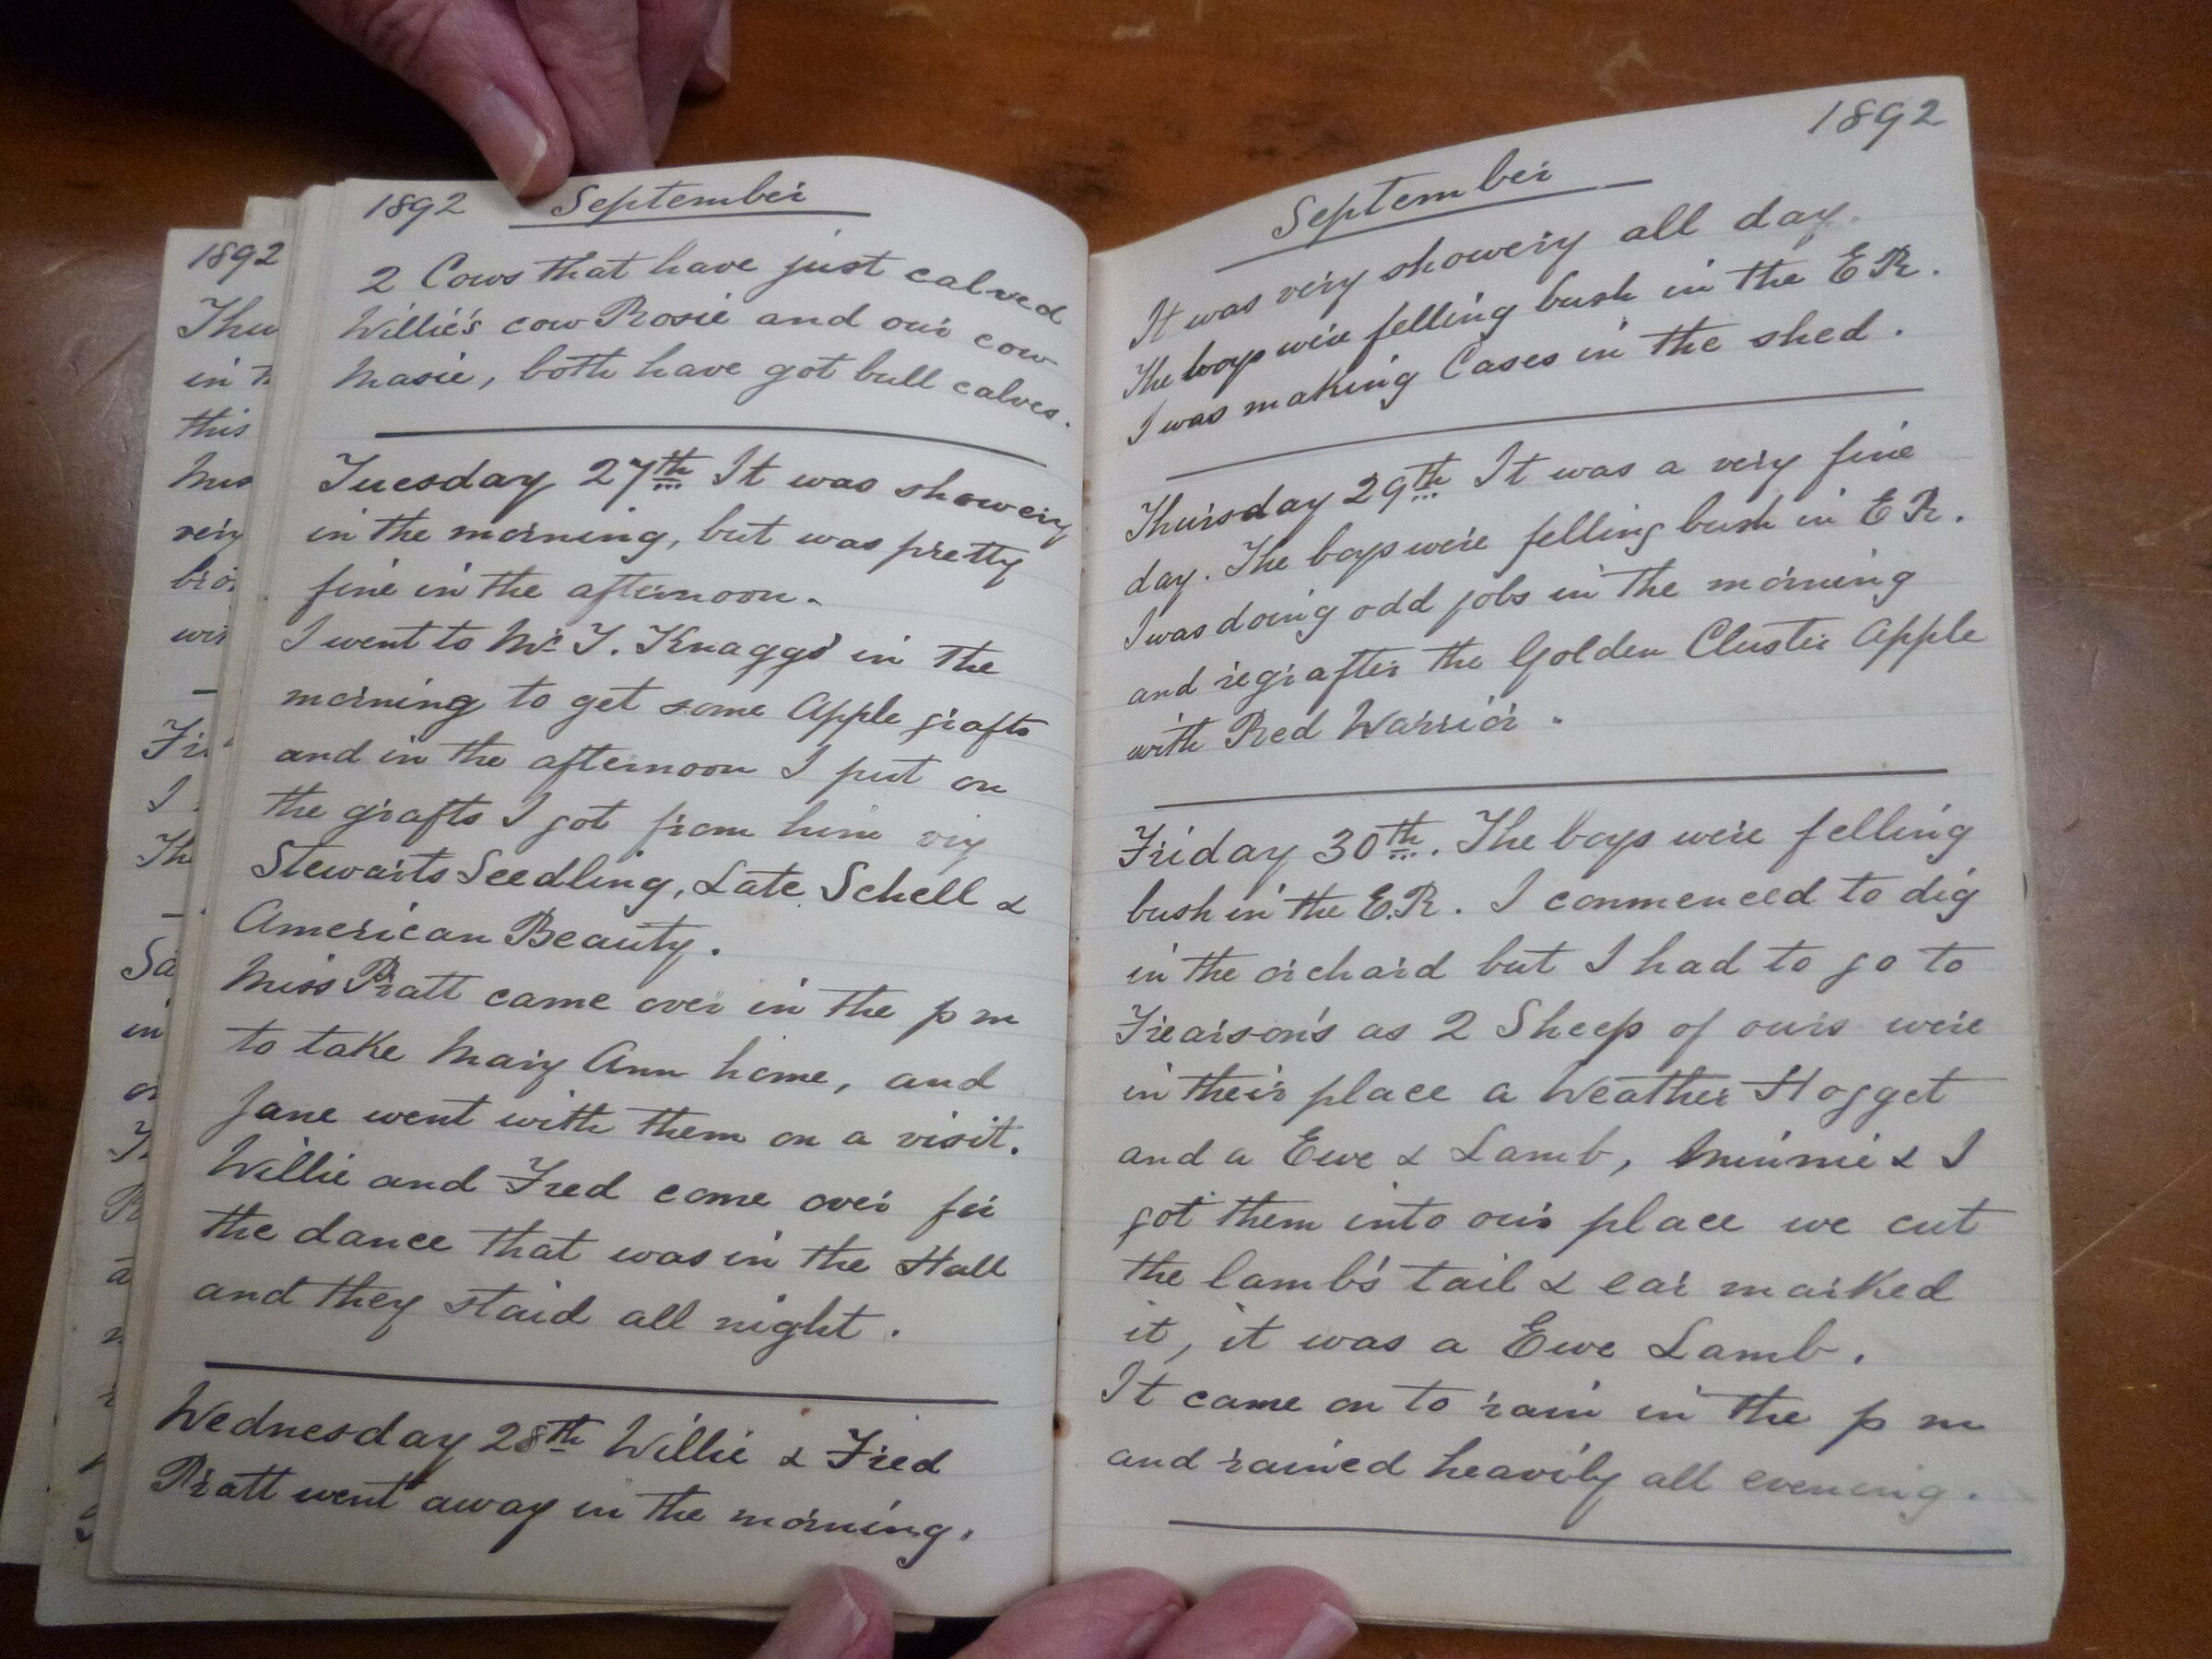 1892 September
2 Cows that have just calved
Willie's cow Rosie and our cow
Masie, both have got bull calves.
Tuesday 27th It was showery
in the morning, but was pretty
fine in the afternoon.
I went to Mr T. Knaggs in the
morning to get some Apple grafts
and in the afternoon I put on
the grafts I got from him viz
Stewarts Seedling, Late Schell &
American Beauty.
Miss Pratt came over in the p m
to take Mary Ann home, and
Jane went with them on a visit.
Willie and Fred come over for
the dance that was in the Hall
and they staid all night.
Wednesday 28th Willie & Fred
Pratt went away in the morning.
1892
September
It was very showery all day.
The boys were felling bush in the E R.
I was making Cases in the shed.
Thursday 29th It was a very fine
day. The boys were felling bush in E R.
I was doing odd jobs in the morning
and regrafter the Golden Cluster Apple
with Red Warrior.
Friday 30th. The boys were felling
bush in the E.R. I commenced to dig
in the orchard but I had to go to
Frearson's as 2 Sheep of ours were
in their place a Weather Hogget
and a Ewe & Lamb, Minnie & I
got them into our place we cut
the lamb's tail & ear marked
it, it was a Ewe Lamb.
It came on to rain in the p m
and rained heavily all evening.
1892
Thu
in
this
very
Fri
I
Th
Sa
in